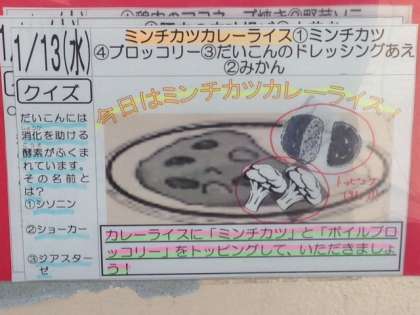 1/13(水)
ミンチカツカレーライス①ミンチカツ
④ブロッコリー③だいこんのドレッシングあえ
②みかん
クイズ
だいこんには
消化を助ける
酵素がふくま
れています。
その名前と
は？
①シソニン
②ショーカー
③ジアスター
ゼ
今日はミンチカツカレーライス！
カレーライスに「ミンチカツ」と「ボイルブロ
ッコリー」をトッピングして、いただきましょ
う！